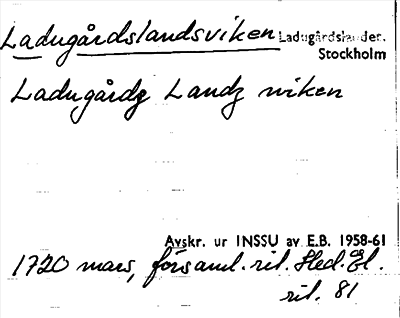 Ladugårdslandsviken Ladugårdslandet.
Stockholm
Ladugårdz Landz wiken
Avskr. ur INSSU av E.B. 1958-61
1720 mars, församl. rit. Hed. El.
rit. 81